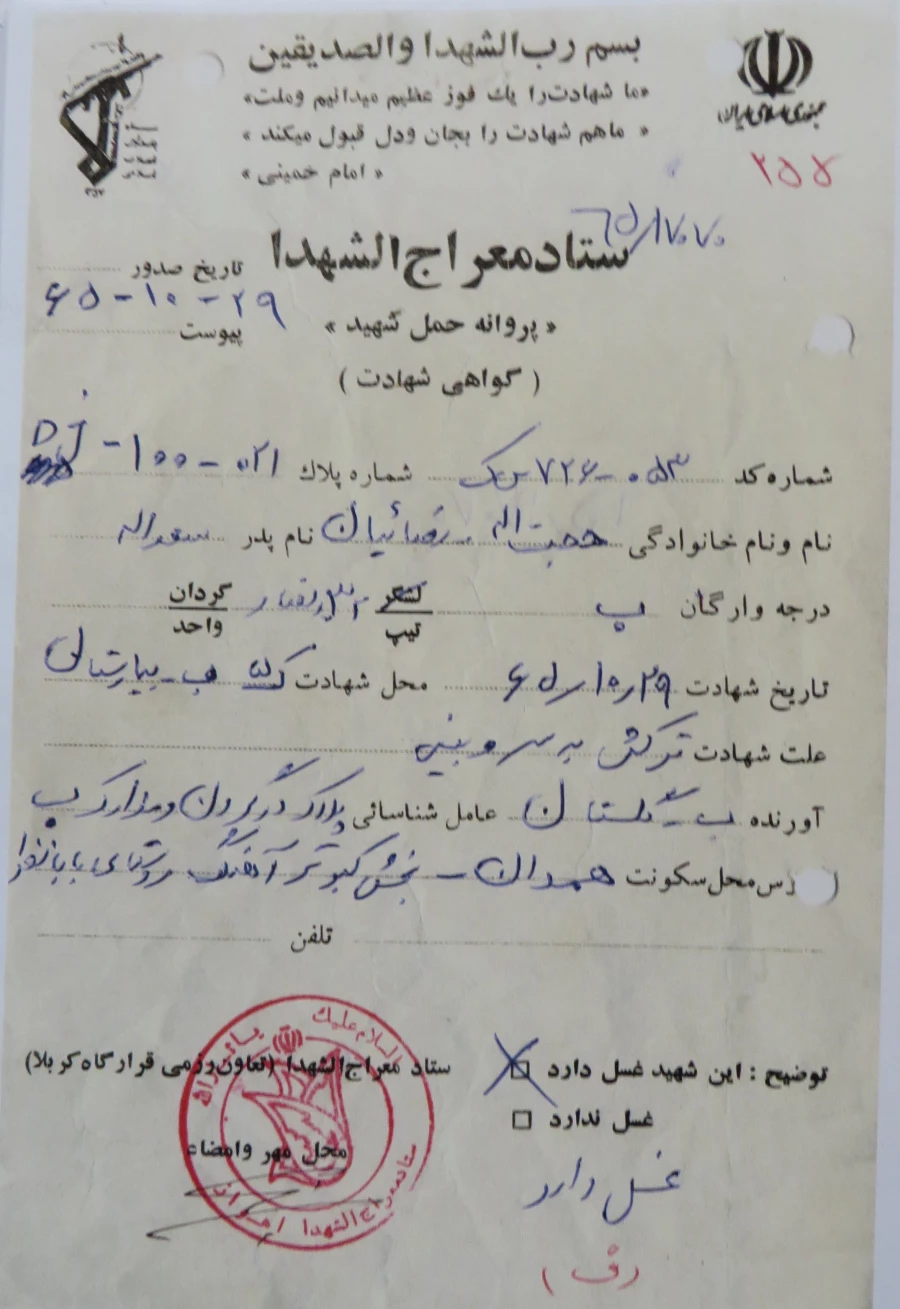 بسم رب الشهدا والصديقين
«ما شهادت را يك فوز عظيم ميدانيم وملت»
« ماهم شهادت را بجان ودل قبول ميكند »
« امام خمينى »
جمهوری اسلامی ایران
۲۵۵
ستاد معراج الشهدا
تاریخ صدور
۶۵-۱۰-۲۹
پیوست
« پروانه حمل شهید »
( گواهی شهادت )
شماره کد ۰۵۳-۷۲۶ شماره پلاک ۰۲۱-۱۰۰-
نام ونام خانوادگی حجت اله رضائیان نام پدر سعداله
درجه وارگان ب لشگر تیپ ۳۲ انصار گردان واحد
تاریخ شهادت ۶۵/۱۰/۲۹ محل شهادت ک ۵ ب-بیمارستان
علت شهادت ترکش به سر و بینی
آورنده ب-گلستان عامل شناسائی پلاک در گردن و مدارک ب
رس محل سکونت همدان - بخش کبوتر آهنگ روستای بابانظر
تلفن
توضیح : این شهید غسل دارد
غسل ندارد
غسل دارد
ستاد معراج الشهدا (تعاون رزمی قرارگاه کربلا)
محل مهر وامضاء
السلام علیک
یا ثارالله
ستاد معراج الشهدا اهواز